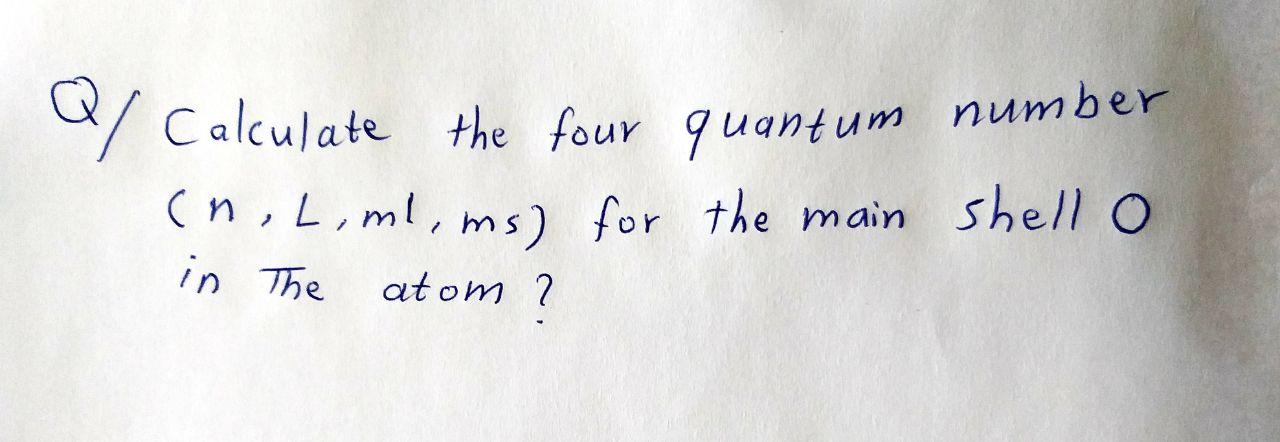 Q/ Calculate the four quantum number
(n, L, ml, ms) for the main shell O
in The atom ?